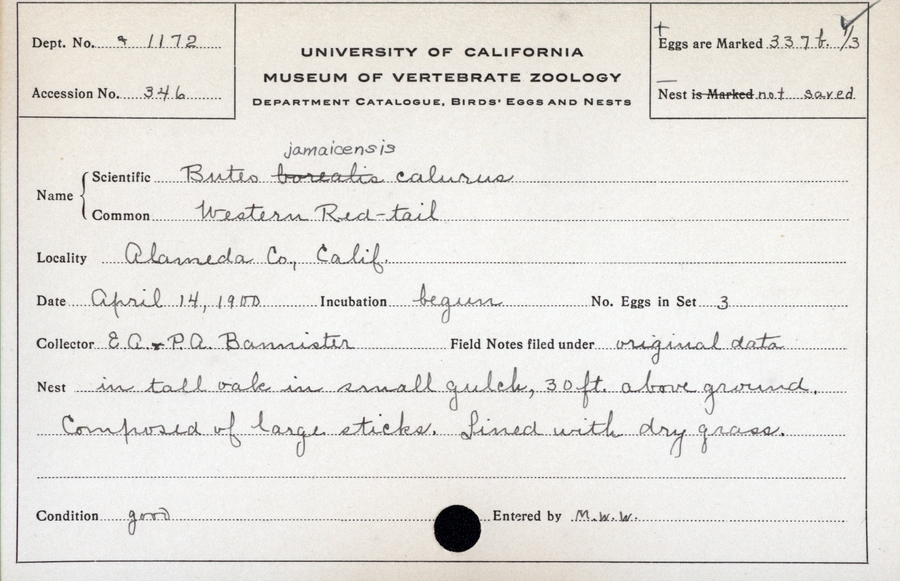 Dept. No. 1172
UNIVERSITY OF CALIFORNIA
MUSEUM OF VERTEBRATE ZOOLOGY
DEPARTMENT CATALOGUE, BIRDS' EGGS AND NESTS
Accession No. 346
Eggs are Marked 337b. 1/3
Nest is Marked not saved
jamaicensis
Name Scientific Buteo borealis calurus
Common Western Red-tail
Locality Alameda Co., Calif.
Date April 14, 1900 Incubation begun No. Eggs in Set 3
Collector E.A. & P.A. Bannister Field Notes filed under original data
Nest in tall oak in small gulch, 30 ft. above ground.
Composed of large sticks. Lined with dry grass.
Condition good Entered by M.W.W.